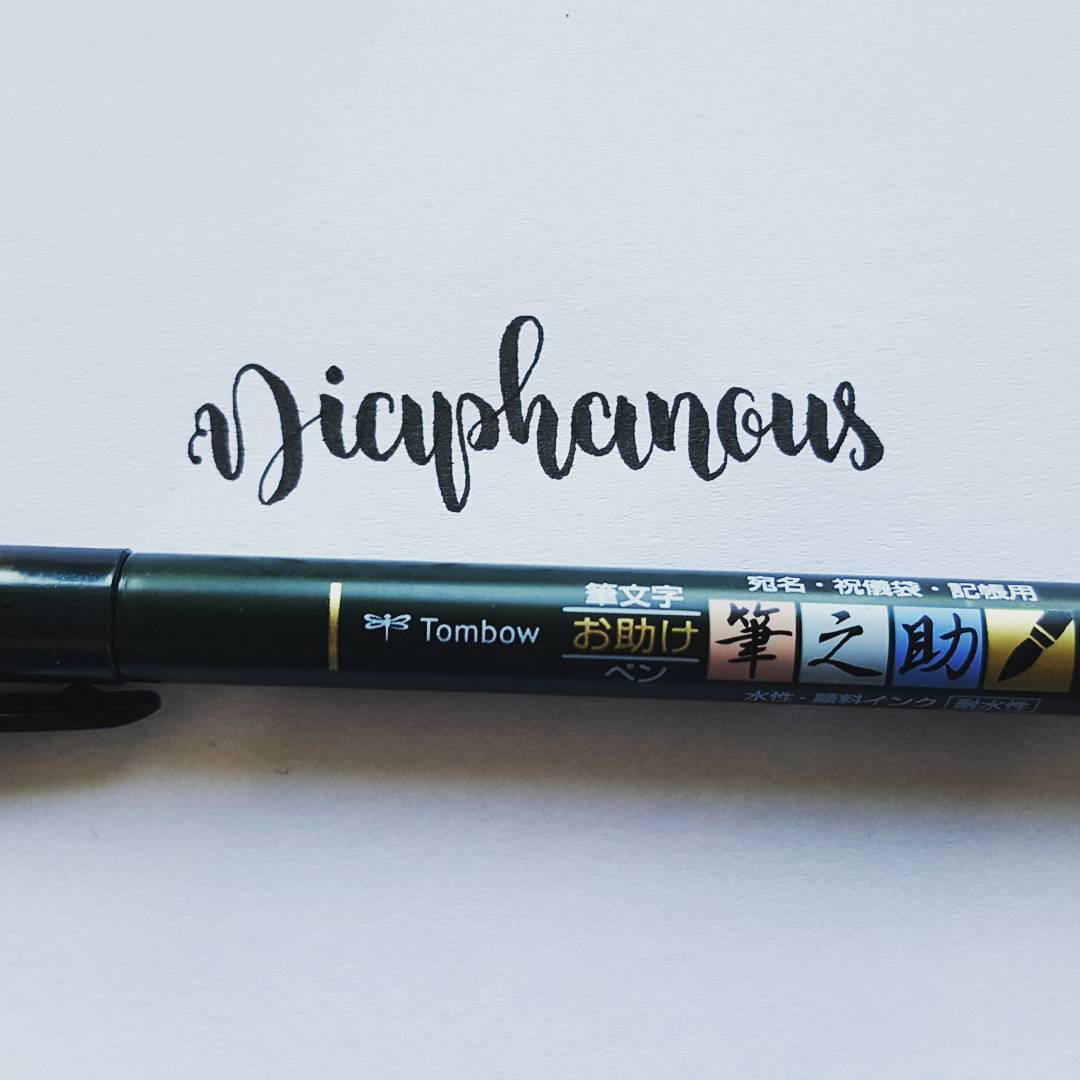 Diaphanous
Tombow
筆文字
お助け
ペン
宛名・祝儀袋・記帳用
筆之助
水性・顔料インク 耐水性